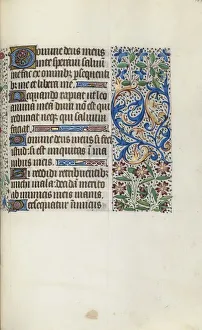 Domine deus meus
in te speravi salvum
me fac ex omnibus psequentib
me et libera me
Nequando rapiat ut leo
animam meam dum non est qui
redimat neqz qui salvum
faciat
Domine deus meus si feci
istud: si est iniquitas in ma
nibus meis
Si reddidi retribuentibz
michi mala: decidam merito
ab inimicis meis inanis
Persequatur inimicus